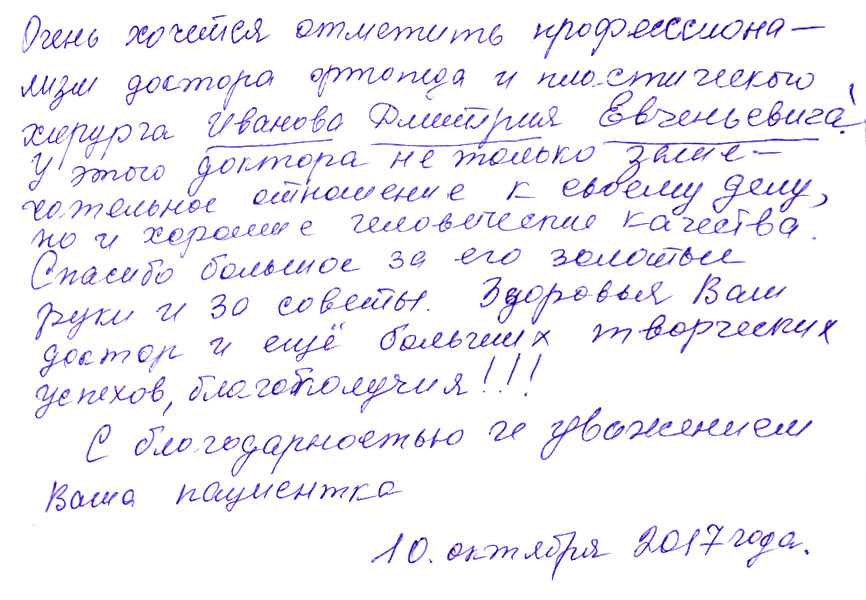 Очень хочется отметить профессиона-
лизм доктора ортопеда и пластического
хирурга Иванова Дмитрия Евгеньевича!
У этого доктора не только заме-
чательное отношение к своему делу,
но и хорошие человеческие качества.
Спасибо большое за его золотые
руки и за советы. Здоровья Вам
доктор и ещё больших творческих
успехов, благополучия!!!
С благодарностью и уважением
Ваша пациентка
10. октября 2017 года.